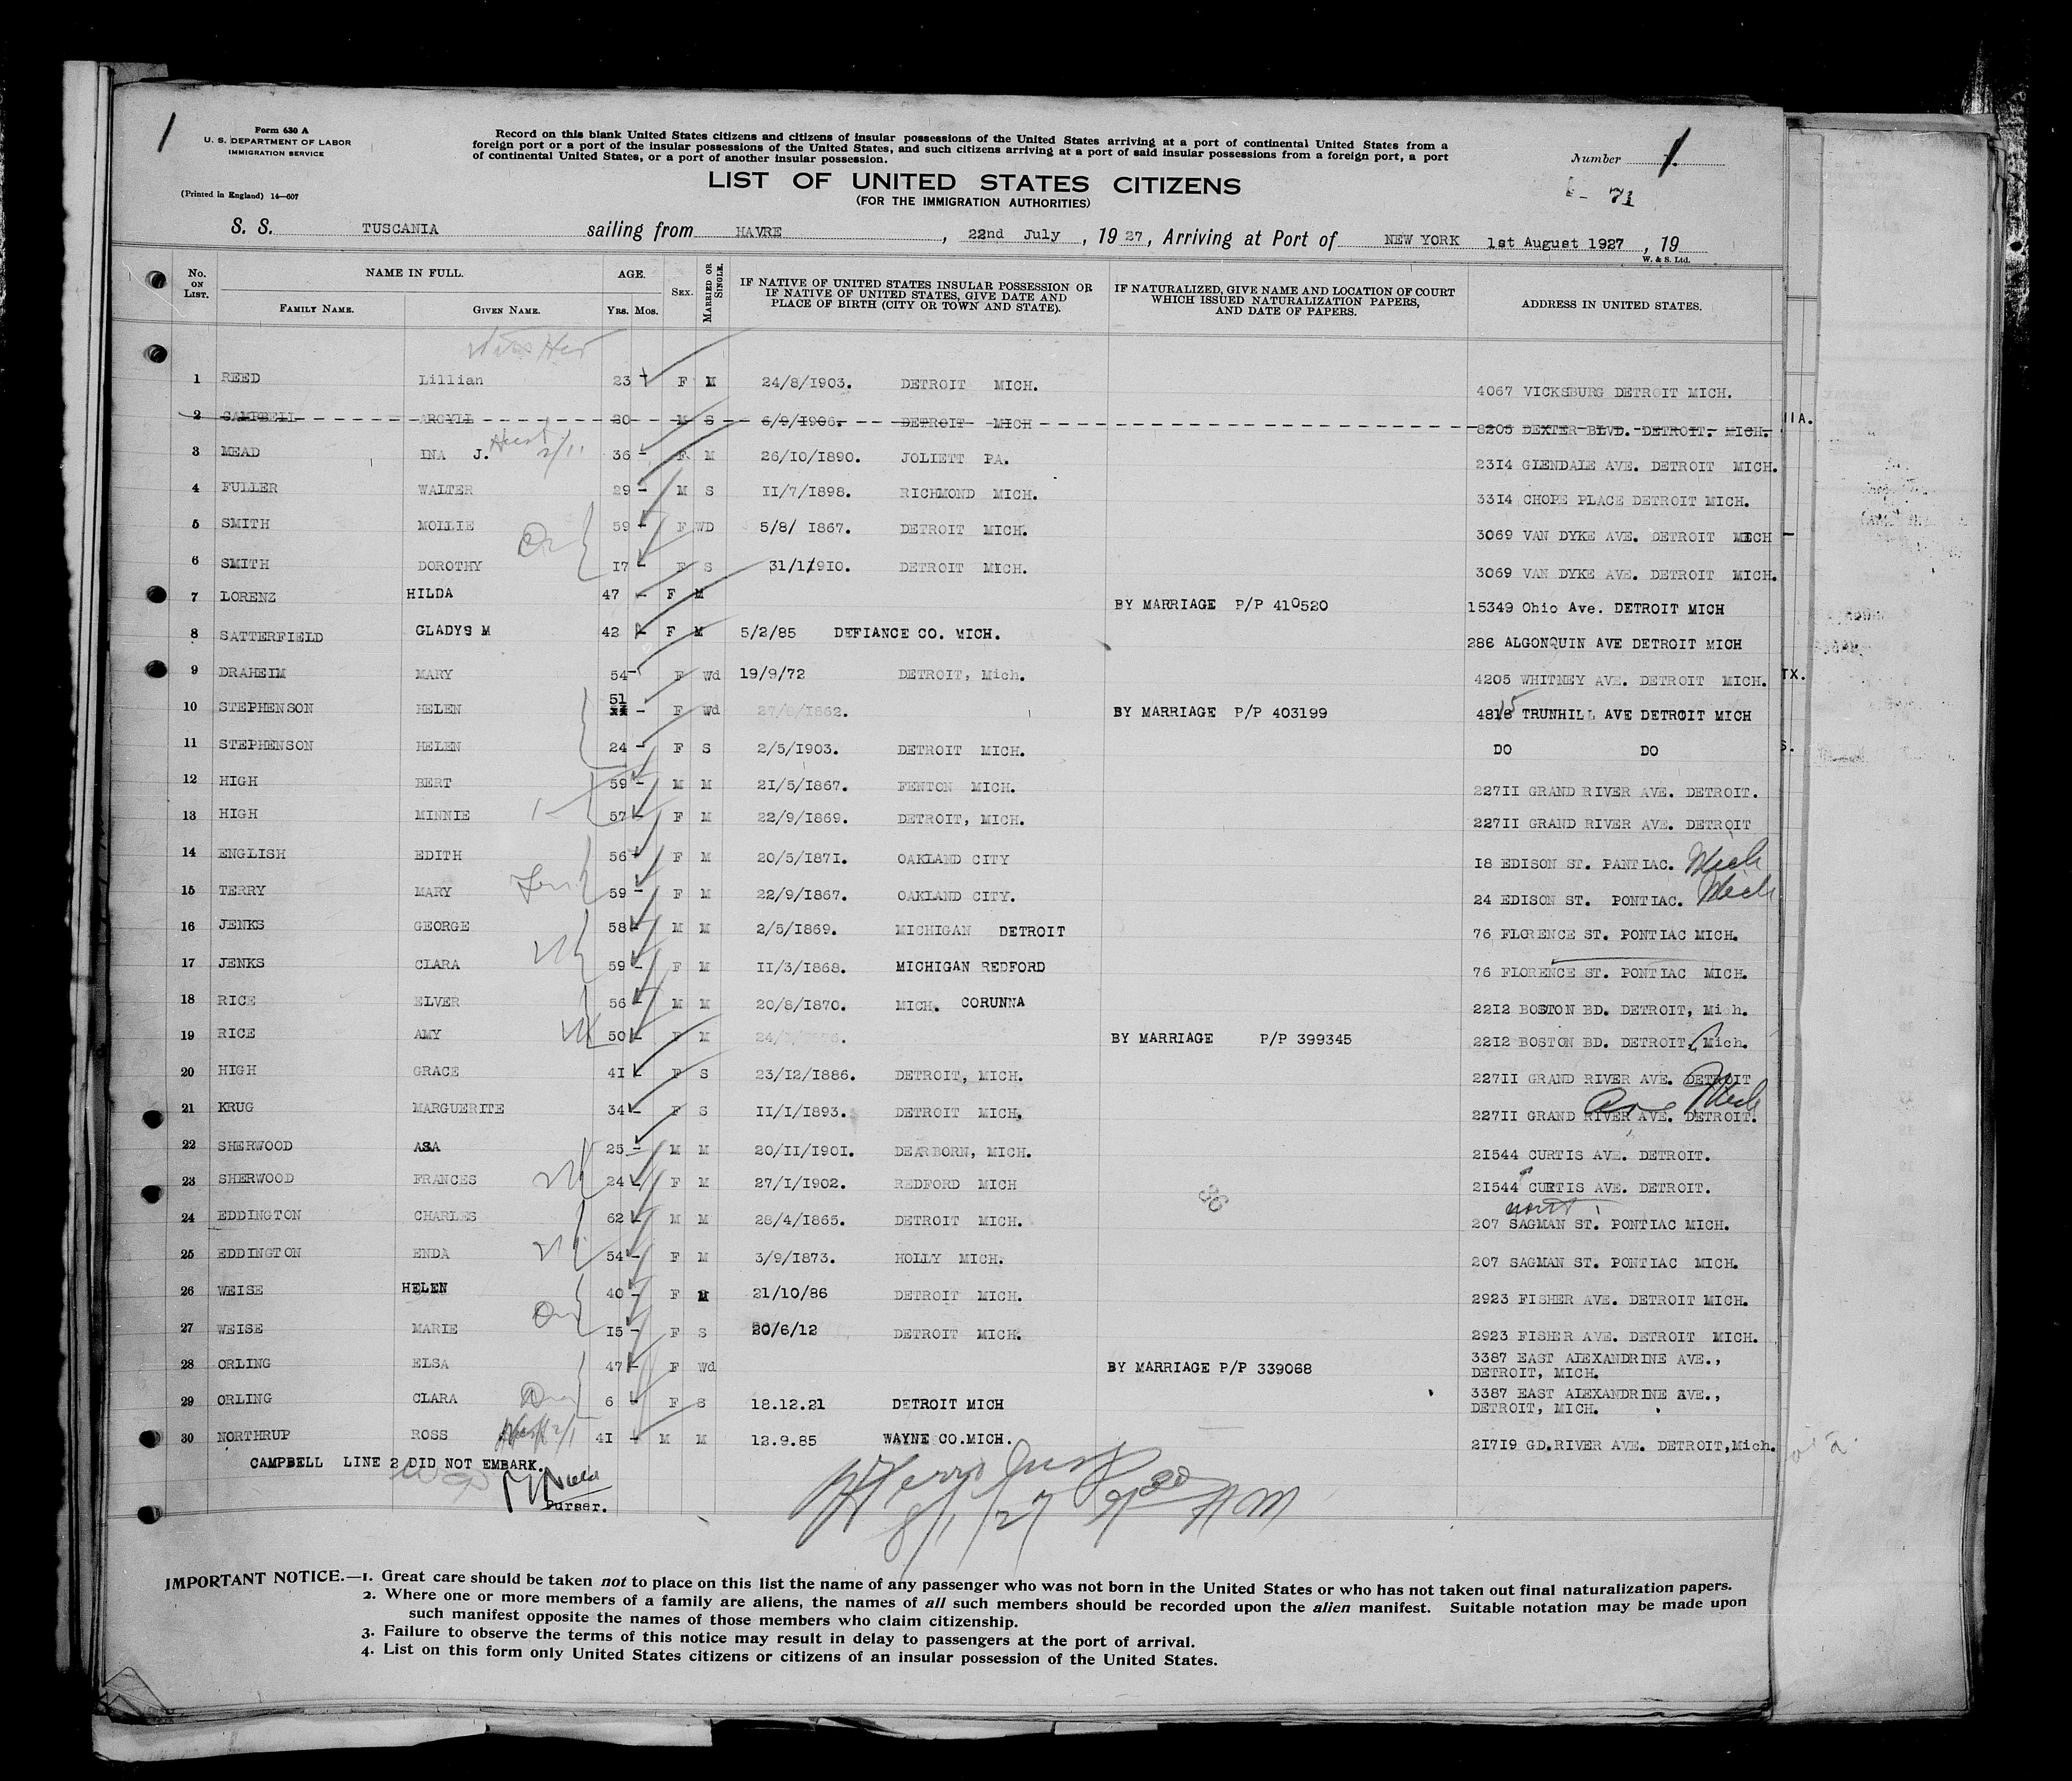 1
Form 630 A
U. S. DEPARTMENT OF LABOR
IMMIGRATION SERVICE
(Printed in England) 14—607
Record on this blank United States citizens and citizens of insular possessions of the United States arriving at a port of continental United States from a
foreign port or a port of the insular possessions of the United States, and such citizens arriving at a port of said insular possessions from a foreign port, a port
of continental United States, or a port of another insular possession.
Number 1
71
LIST OF UNITED STATES CITIZENS
(FOR THE IMMIGRATION AUTHORITIES)
S. S. TUSCANIA sailing from HAVRE, 22nd July, 1927, Arriving at Port of NEW YORK 1st August 1927, 19
W. & S. Ltd.
No. ON LIST. NAME IN FULL. FAMILY NAME. GIVEN NAME. AGE. Yrs. Mos. SEX. MARRIED OR SINGLE. IF NATIVE OF UNITED STATES INSULAR POSSESSION OR IF NATIVE OF UNITED STATES, GIVE DATE AND PLACE OF BIRTH (CITY OR TOWN AND STATE). IF NATURALIZED, GIVE NAME AND LOCATION OF COURT WHICH ISSUED NATURALIZATION PAPERS, AND DATE OF PAPERS. ADDRESS IN UNITED STATES.
1 REED Lillian 23 F M 24/8/1903. DETROIT MICH. 4067 VICKSBURG DETROIT MICH.
2 CAMPBELL ARGYLL 20 M S 6/9/1906. DETROIT MICH 8205 DEXTER BLVD. DETROIT. MICH.
3 MEAD INA J. 36 - F M 26/10/1890. JOLIETT PA. 2314 GLENDALE AVE. DETROIT MICH.
4 FULLER WALTER 29 - M S 11/7/1898. RICHMOND MICH. 3314 CHOPE PLACE DETROIT MICH.
5 SMITH MOLLIE 59 - F WD 5/8/ 1867. DETROIT MICH. 3069 VAN DYKE AVE. DETROIT MICH
6 SMITH DOROTHY 17 - F S 31/1/1910. DETROIT MICH. 3069 VAN DYKE AVE. DETROIT MICH.
7 LORENZ HILDA 47 - F M BY MARRIAGE P/P 410520 15349 Ohio Ave. DETROIT MICH
8 SATTERFIELD GLADYS M 42 - F M 5/2/85 DEFIANCE CO. MICH. 286 ALGONQUIN AVE DETROIT MICH
9 DRAHEIM MARY 54- F Wd 19/9/72 DETROIT, Mich. 4205 WHITNEY AVE. DETROIT MICH.
10 STEPHENSON HELEN 51 - F Wd 27/8/1862. BY MARRIAGE P/P 403199 4815 TRUNHILL AVE DETROIT MICH
11 STEPHENSON HELEN 24 - F S 2/5/1903. DETROIT MICH. DO DO
12 HIGH BERT 59 - M M 21/5/1867. FENTON MICH. 22711 GRAND RIVER AVE. DETROIT.
13 HIGH MINNIE 57 - F M 22/9/1869. DETROIT, MICH. 22711 GRAND RIVER AVE. DETROIT
14 ENGLISH EDITH 56 - F M 20/5/1871. OAKLAND CITY 18 EDISON ST. PANTIAC. Mich
15 TERRY MARY 59 - F M 22/9/1867. OAKLAND CITY. 24 EDISON ST. PONTIAC. Mich
16 JENKS GEORGE 58 - M M 2/5/1869. MICHIGAN DETROIT 76 FLORENCE ST. PONTIAC MICH.
17 JENKS CLARA 59 - F M 11/3/1868. MICHIGAN REDFORD 76 FLORENCE ST. PONTIAC MICH.
18 RICE ELVER 56 - M M 20/8/1870. MICH. CORUNNA 2212 BOSTON BD. DETROIT, Mich.
19 RICE AMY 50 - F M BY MARRIAGE P/P 399345 2212 BOSTON BD. DETROIT, Mich.
20 HIGH GRACE 41 - F S 23/12/1886. DETROIT, MICH. 22711 GRAND RIVER AVE. DETROIT
21 KRUG MARGUERITE 34 - F S 11/1/1893. DETROIT MICH. 22711 GRAND RIVER AVE. DETROIT. Mich
22 SHERWOOD ASA 25 - M M 20/11/1901. DEARBORN, MICH. 21544 CURTIS AVE. DETROIT.
23 SHERWOOD FRANCES 24 - F M 27/1/1902. REDFORD MICH 21544 CURTIS AVE. DETROIT.
24 EDDINGTON CHARLES 62 - M M 28/4/1865. DETROIT MICH. 207 SAGMAN ST. PONTIAC MICH.
25 EDDINGTON ENDA 54 - F M 3/9/1873. HOLLY MICH. 207 SAGMAN ST. PONTIAC MICH.
26 WEISE HELEN 40 - F M 21/10/86 DETROIT MICH. 2923 FISHER AVE. DETROIT MICH.
27 WEISE MARIE 15 - F S 20/6/12 DETROIT MICH. 2923 FISHER AVE. DETROIT MICH.
28 ORLING ELSA 47 - F Wd BY MARRIAGE P/P 339068 3387 EAST ALEXANDRINE AVE., DETROIT, MICH.
29 ORLING CLARA 6 - F S 18.12.21 DETROIT MICH 3387 EAST ALEXANDRINE AVE., DETROIT, MICH.
30 NORTHRUP ROSS 41 - M M 12.9.85 WAYNE CO.MICH. 21719 GD.RIVER AVE. DETROIT,Mich.
CAMPBELL LINE 2 DID NOT EMBARK.
Purser.
8/1/27
IMPORTANT NOTICE.—1. Great care should be taken not to place on this list the name of any passenger who was not born in the United States or who has not taken out final naturalization papers.
2. Where one or more members of a family are aliens, the names of all such members should be recorded upon the alien manifest. Suitable notation may be made upon
such manifest opposite the names of those members who claim citizenship.
3. Failure to observe the terms of this notice may result in delay to passengers at the port of arrival.
4. List on this form only United States citizens or citizens of an insular possession of the United States.